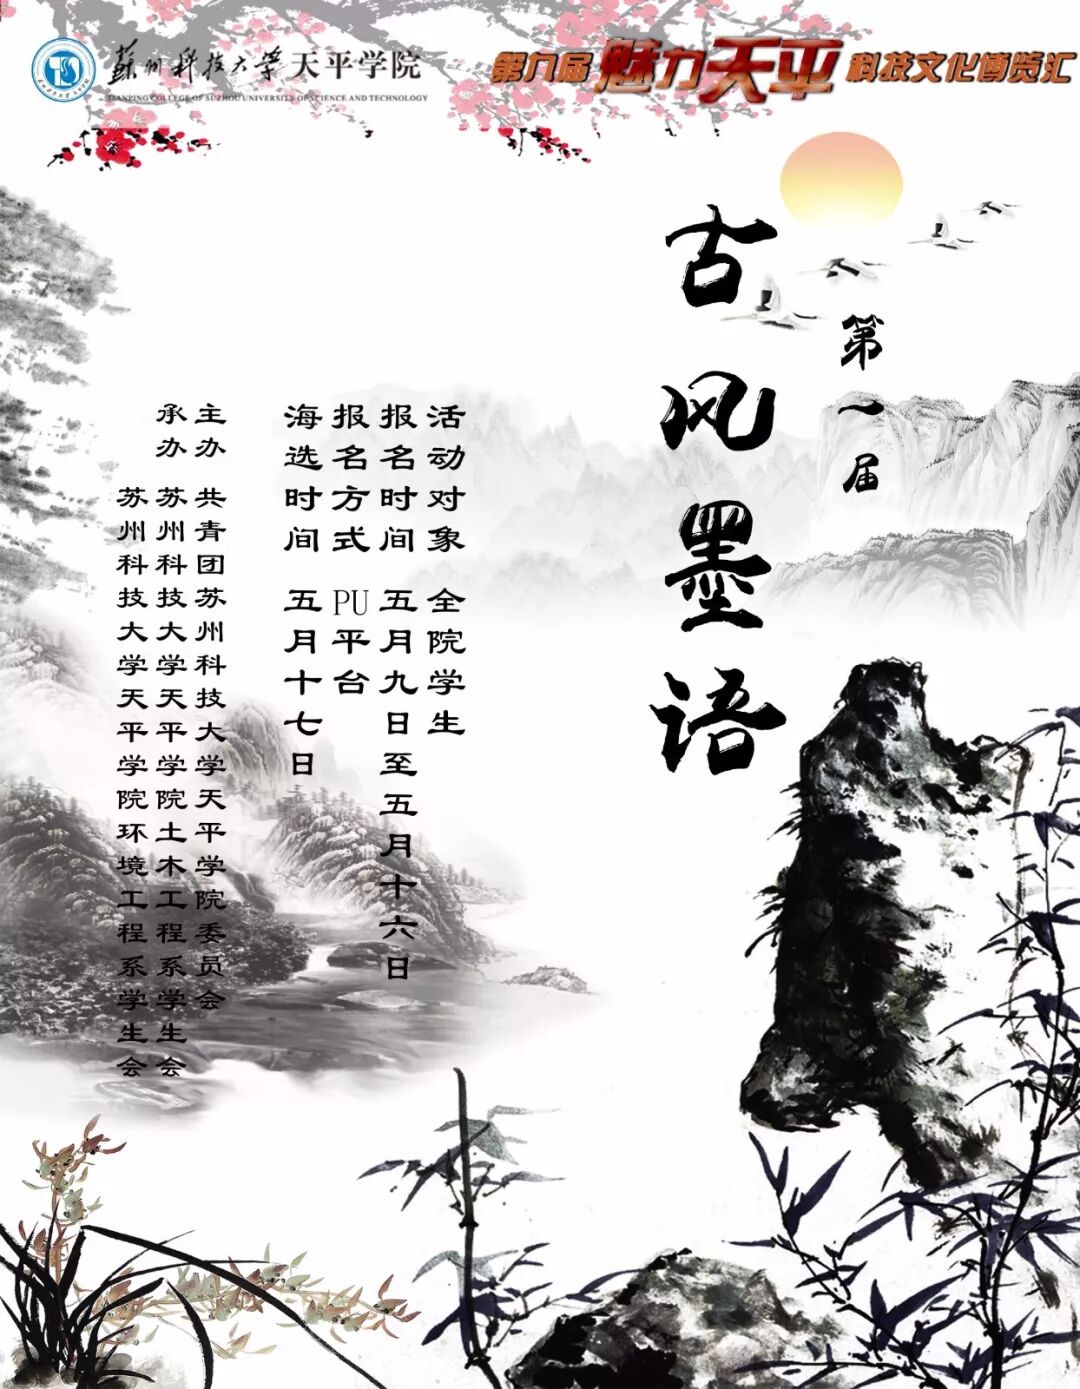 蘇州科技大學天平学院
TIANPING COLLEGE OF SUZHOU UNIVERSITY OF SCIENCE AND TECHNOLOGY
第九届魅力天平科技文化博览汇
第一届
古风墨语
活动对象 全院学生
报名时间 五月九日至五月十六日
报名方式 PU平台
海选时间 五月十七日
主办 共青团苏州科技大学天平学院委员会
承办 苏州科技大学天平学院土木工程系学生会
苏州科技大学天平学院环境工程系学生会